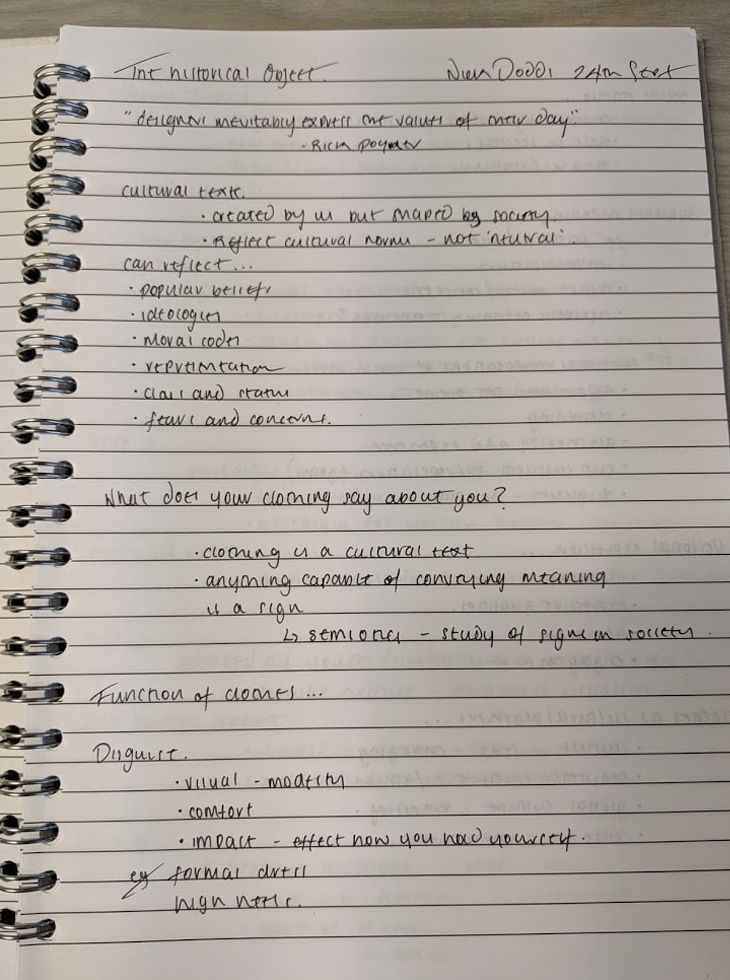 The historical Object. Nien Dodd1 24th Sept
"designers inevitably express the values of their day".
- Rich Poynter
cultural texts.
· created by us but shaped by society.
· Reflect cultural norms - not 'netural'.
can reflect...
· popular beliefs
· ideologies
· moral codes
· representation
· class and status
· fears and concerns.
What does your clothing say about you?
· clothing is a cultural text
· anything capable of conveying meaning
is a sign
↳ semiotics - study of signs in society.
Function of clothes...
Disguise.
· visual - modesty
· comfort
· impact - effect how you hold yourself.
eg formal dress
high heels.